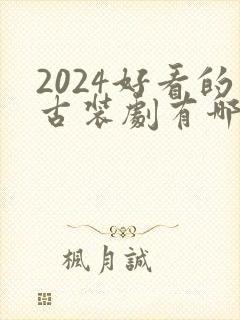 2024好看的
古装劇有哪
楓月誠